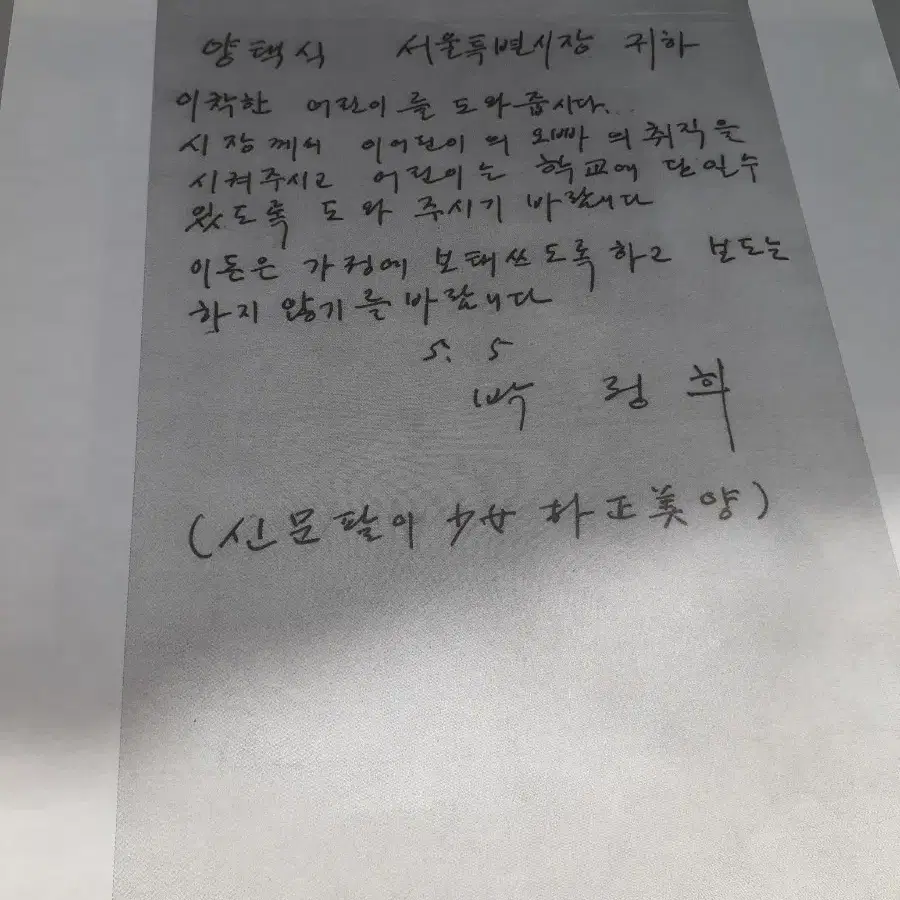 양택식 서울특별시장 귀하
이착한 어린이를 도와줍시다...
시장께서 이어린이의 오빠의 취직을
시켜주시고 어린이는 학교에 단일수
있도록 도와 주시기 바랍니다
이돈은 가정에 보태쓰도록하고 보도는
하지 않기를바랍니다
5. 5
박 정 희
(신문팔이 少女 하正美양)